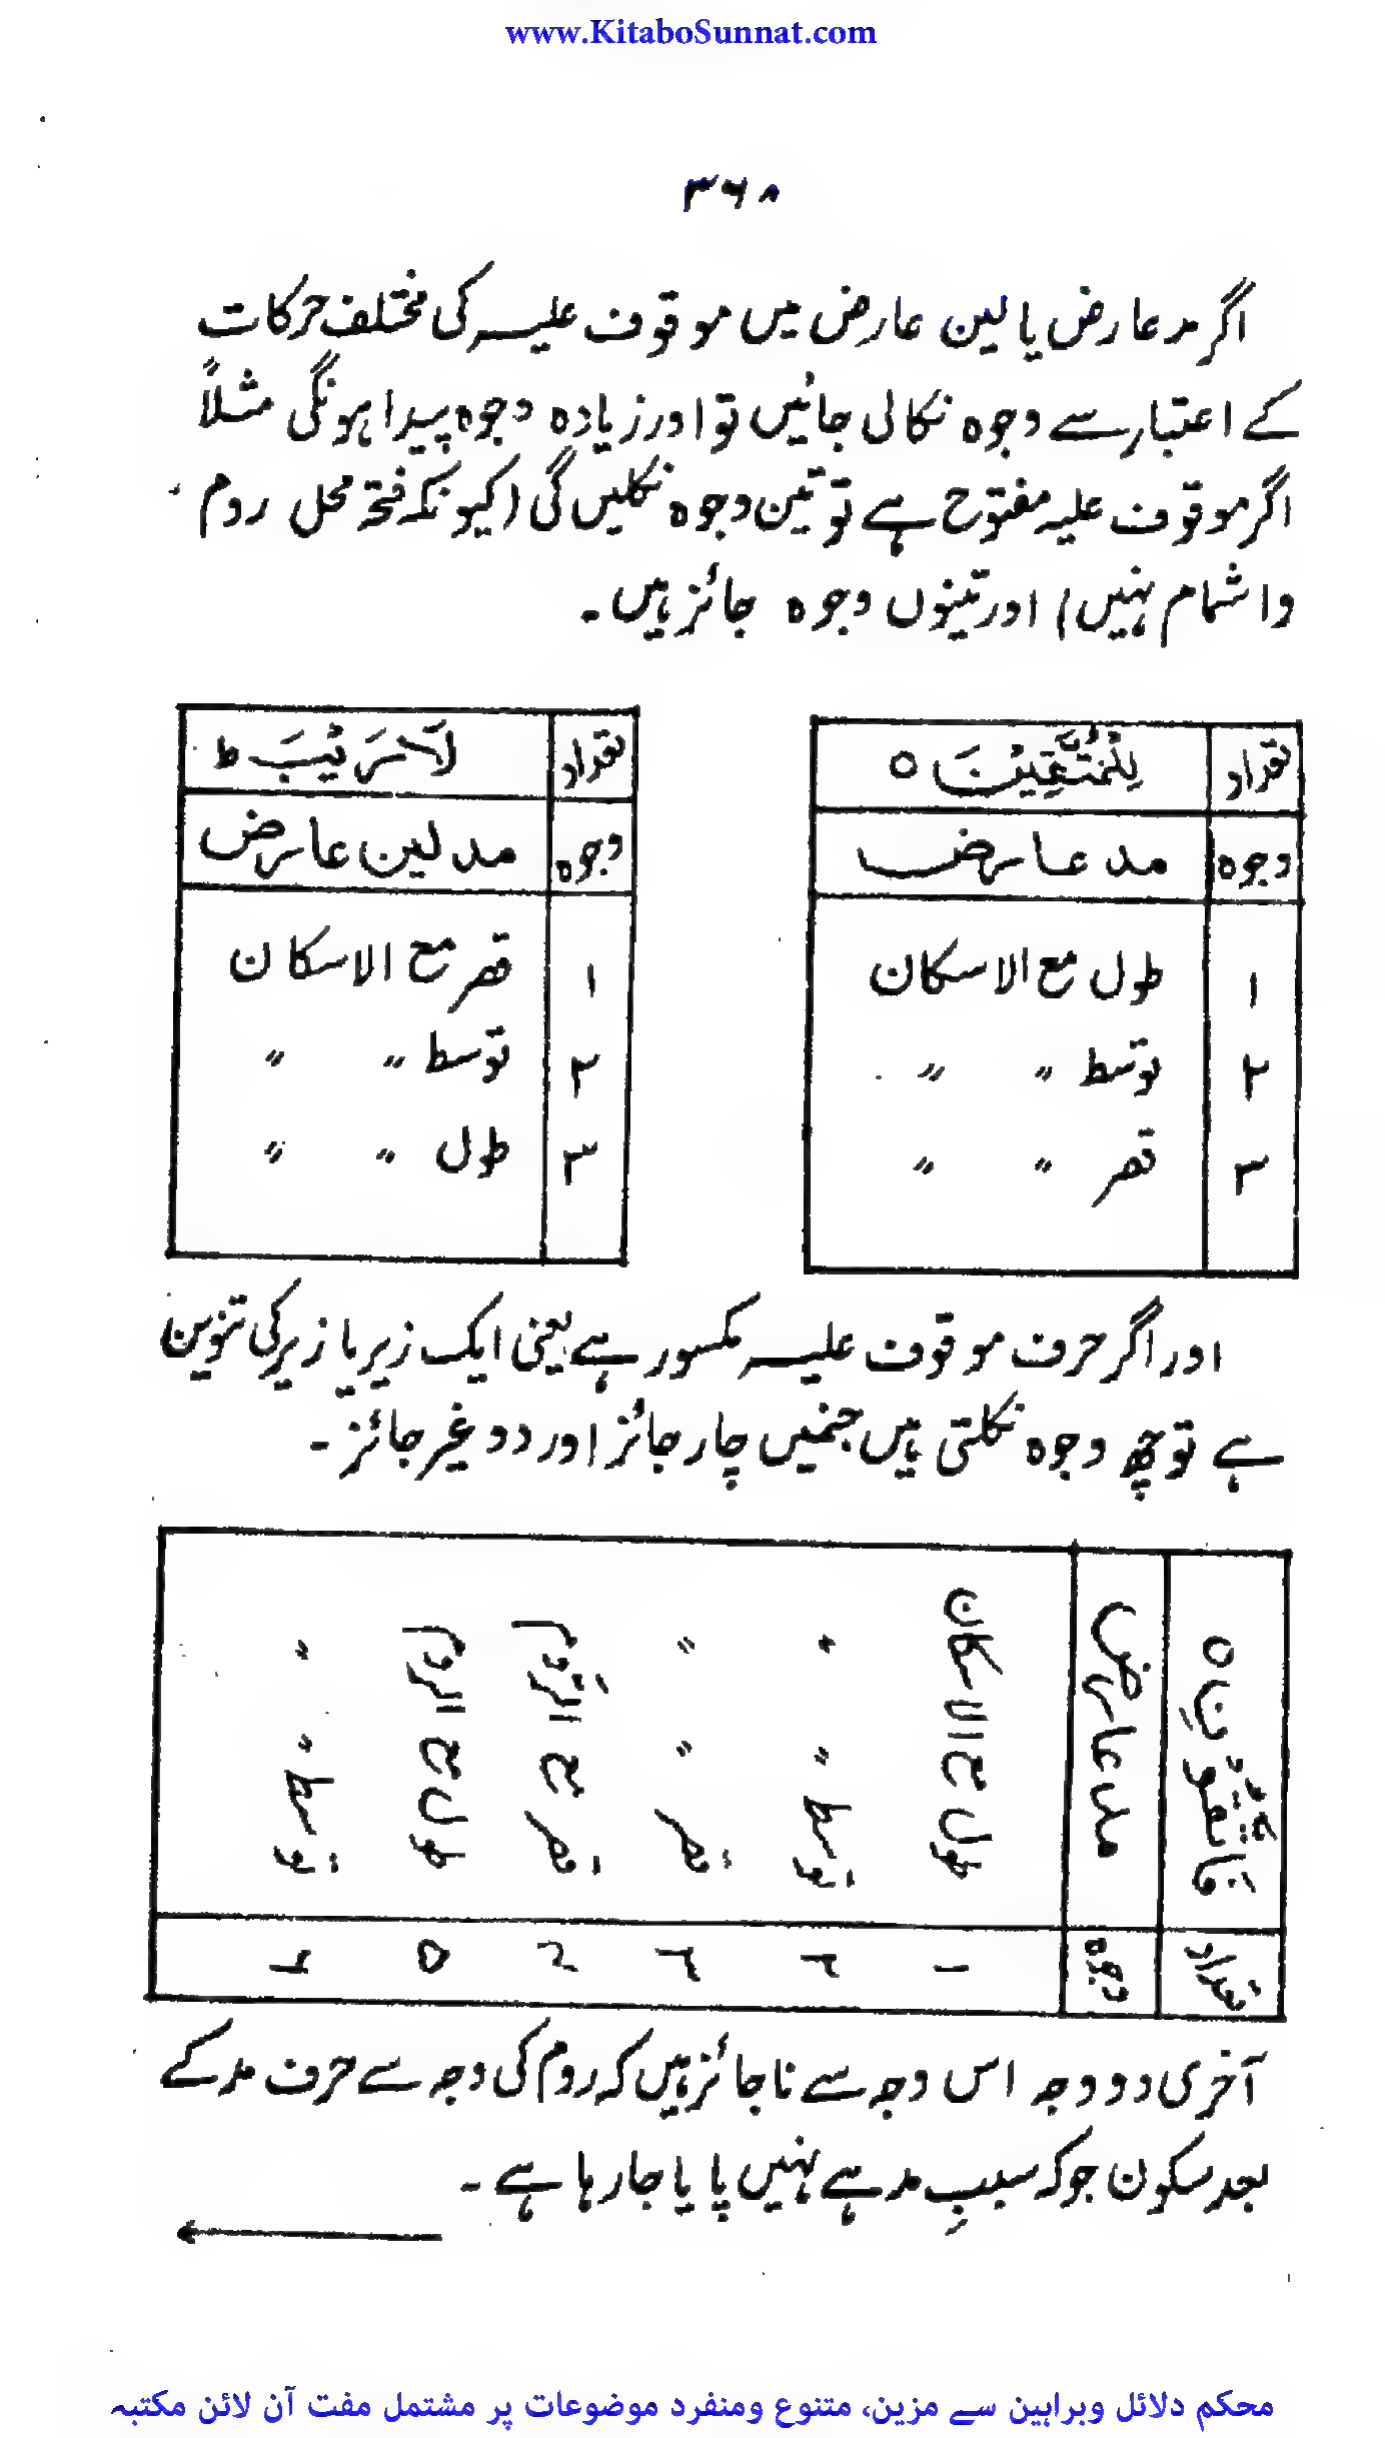 www.KitaboSunnat.com
۳۶۸
اگر مد عارض یا لین عارض میں موقوف علیہ کی مختلف حرکات
کے اعتبار سے وجوہ نکالی جائیں تو اور زیادہ وجوہ پیدا ہونگی مثلاً
اگر موقوف علیہ مفتوح ہے تو تین وجوہ نکلیں گی (کیونکہ فتحہ محل روم
واشمام نہیں) اور تینوں وجوہ جائز ہیں۔
تعداد لِلْمُتَّقِيْنَ ○
وجوہ مد عارض
۱ طول مع الاسکان
۲ توسط 〃 〃
۳ قصر 〃 〃
تعداد لَا رَيْبَ ط
وجوہ مد لین عارض
۱ قصر مع الاسکان
۲ توسط 〃 〃
۳ طول 〃 〃
اور اگر حرف موقوف علیہ مکسور ہے یعنی ایک زیر یا زیر کی تنوین
ہے تو چھ وجوہ نکلتی ہیں جنمیں چار جائز اور دو غیر جائز۔
تعداد فَاتَّقُوْنِ ○
وجوہ مد عارض
۱ طول مع الاسکان
۲ توسط 〃 〃
۳ قصر 〃 〃
۴ قصر مع الرّوم
۵ طول مع الروم
۶ توسط 〃 〃
آخری دو وجہ اس وجہ سے ناجائز ہیں کہ روم کی وجہ سے حرف مد کے
بعد سکون جو کہ سببِ مد ہے نہیں پایا جا رہا ہے۔
محکم دلائل وبراہین سے مزین، متنوع ومنفرد موضوعات پر مشتمل مفت آن لائن مکتبہ